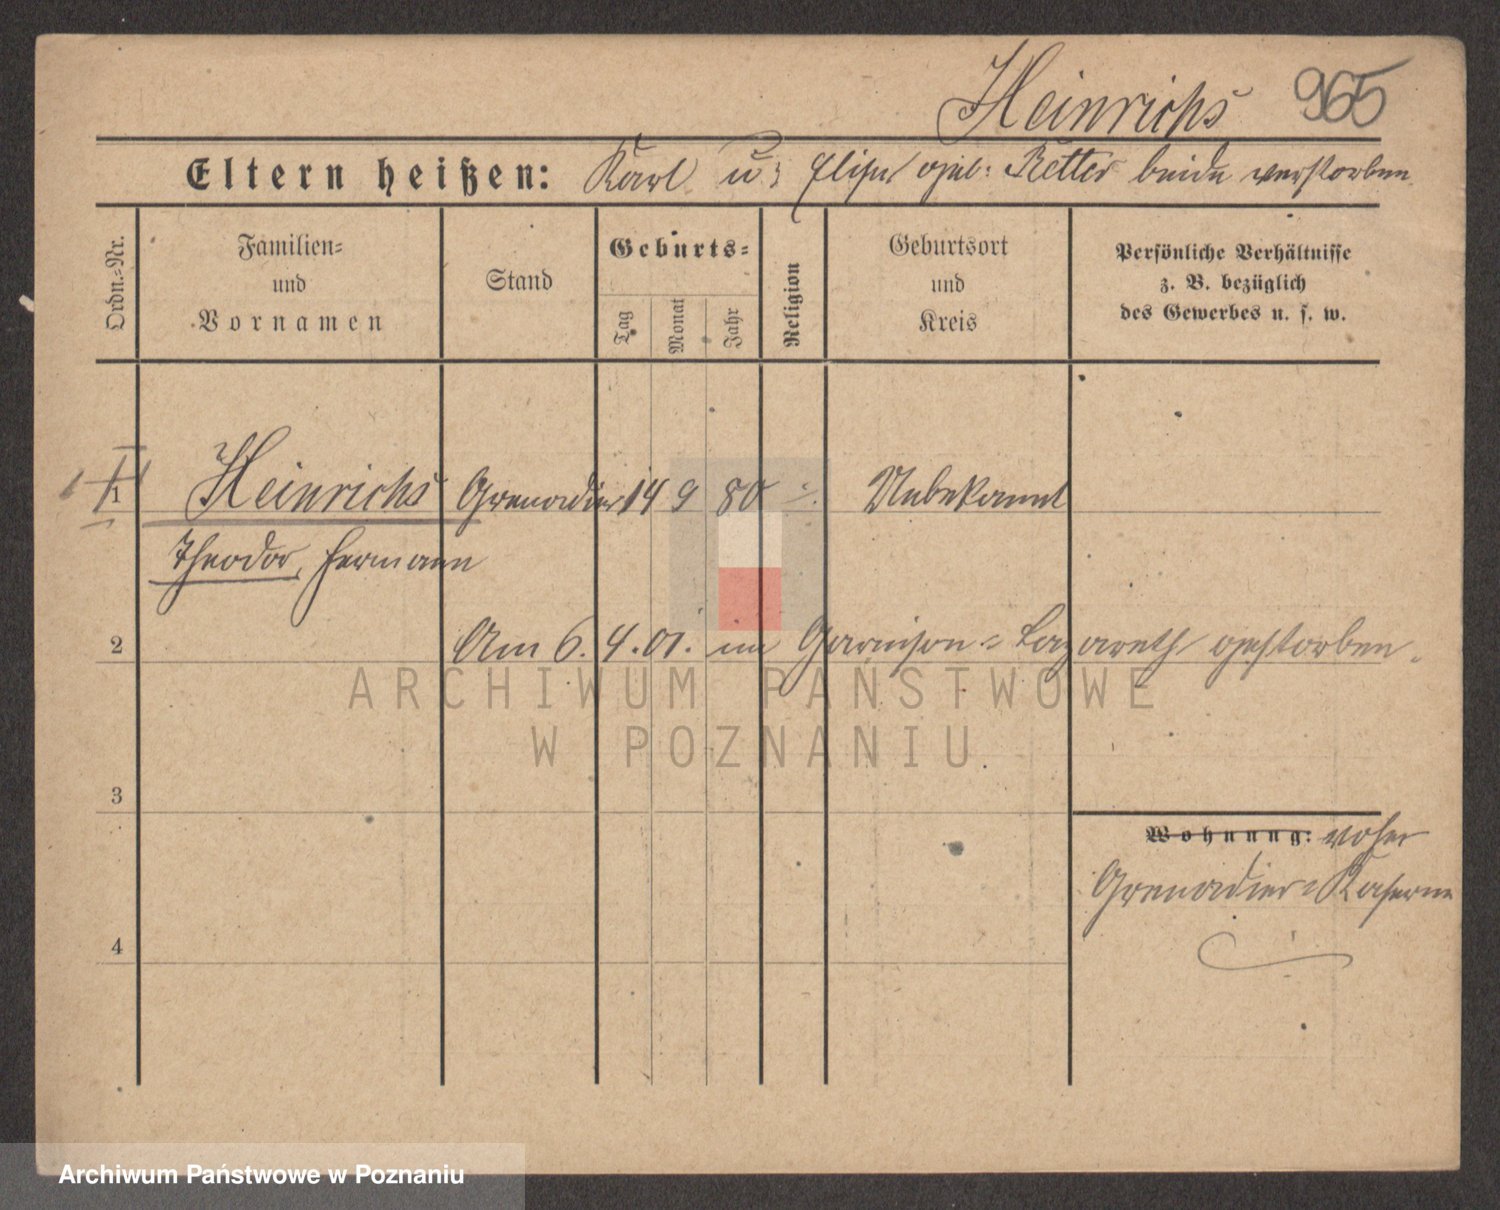 Heinrichs 965
Eltern heißen: Karl u: Elise geb: Retter beide verstorben
Ordn.-Nr.
Familien-
und
Vornamen
Stand
Geburts-
Tag
Monat
Jahr
Religion
Geburtsort
und
Kreis
Persönliche Verhältnisse
z. B. bezüglich
des Gewerbes u. s. w.
1 Heinrichs Grenadier 14 9 80 ·/. Unbekannt
Theodor, Hermann
2 Am 6.4.01. im Garnison-Lazareth gestorben.
ARCHIWUM PAŃSTWOWE
W POZNANIU
3
Wohnung:
Grenadier-Kaserne
4
Archiwum Państwowe w Poznaniu